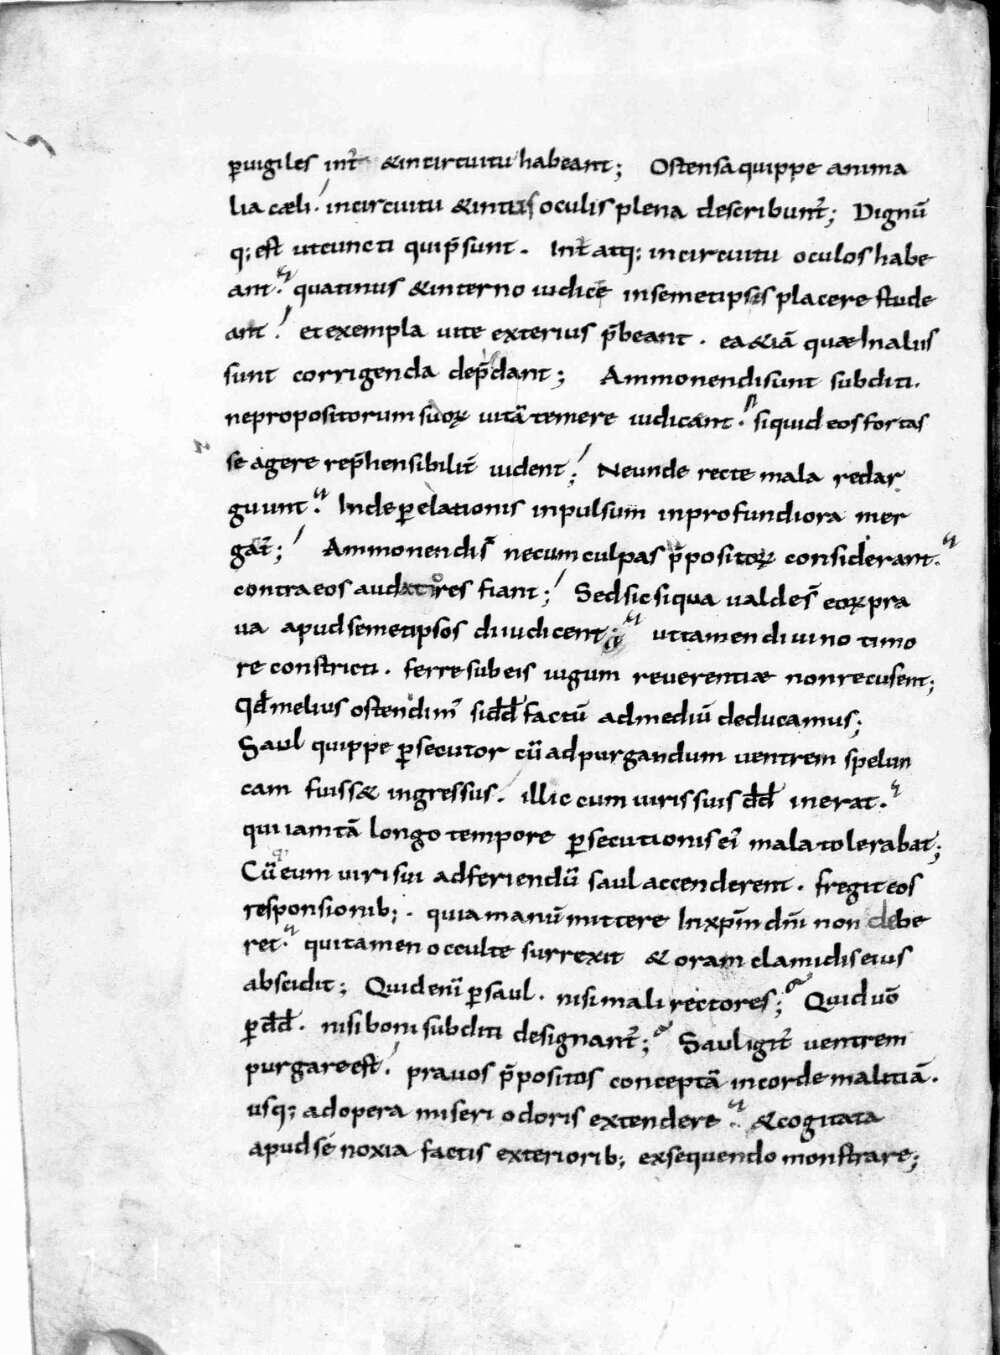 ꝑuigiles int̄ &incircuitu habeant; Ostensa quippe anima
lia cæli. incircuitu &intus oculis plena describunt̄; Dignū
q; est utcuncti qui p̄sunt. Int̄ atq; incircuitu oculos habe
ant. quatinus &interno iudice insemetipsis placere stude
ant. et exempla uite exterius p̄beant. ea &iā quæ Inalus
sunt corrigenda dep̄dant; Ammonendi sunt subditi.
ne propositorum suoꝝ uitā temere iudicant. siquid eos fortas
se agere rep̄hensibilit̄ uident; Ne unde recte mala redar
guunt. Inde ꝑ elationis inpulsum inprofundiora mer
gat̄; Ammonendi s̄ necum culpas p̄positoꝝ considerant.
contra eos audatiores fiant; Sed sic siqua ualde s̄ eoꝝ pra
ua apud semetipsos diiudicent; uttamen diuino timo
re constricti. ferre sub eis iugum reuerentiæ non recusent;
Qd̄ melius ostendim̄ si dd̄ factū admediū deducamus;
Saul quippe ꝑsecutor cū adpurgandum uentrem spelun
cam fuiss& ingressus. illic cum uiris suis dd̄ inerat.
qui iam tā longo tempore ꝑsecutionis ei mala tolerabat;
Cū eum uiri sui adferiendū saul accenderent. fregit eos
responsionib;. quia manū mittere Inxp̄m dn̄i non debe
ret. qui tamen occulte surrexit & oram clamidis eius
abscidit; Quid eni ꝑ saul. nisi mali rectores; Quid uō
ꝑ dd̄. nisi boni subditi designant̄; Saul igit̄ uentrem
purgare est. prauos p̄positos conceptā incorde malitiā.
usq; adopera miseri odoris extendere. &cogitata
apud se noxia factis exteriorib; exsequendo monstrare;